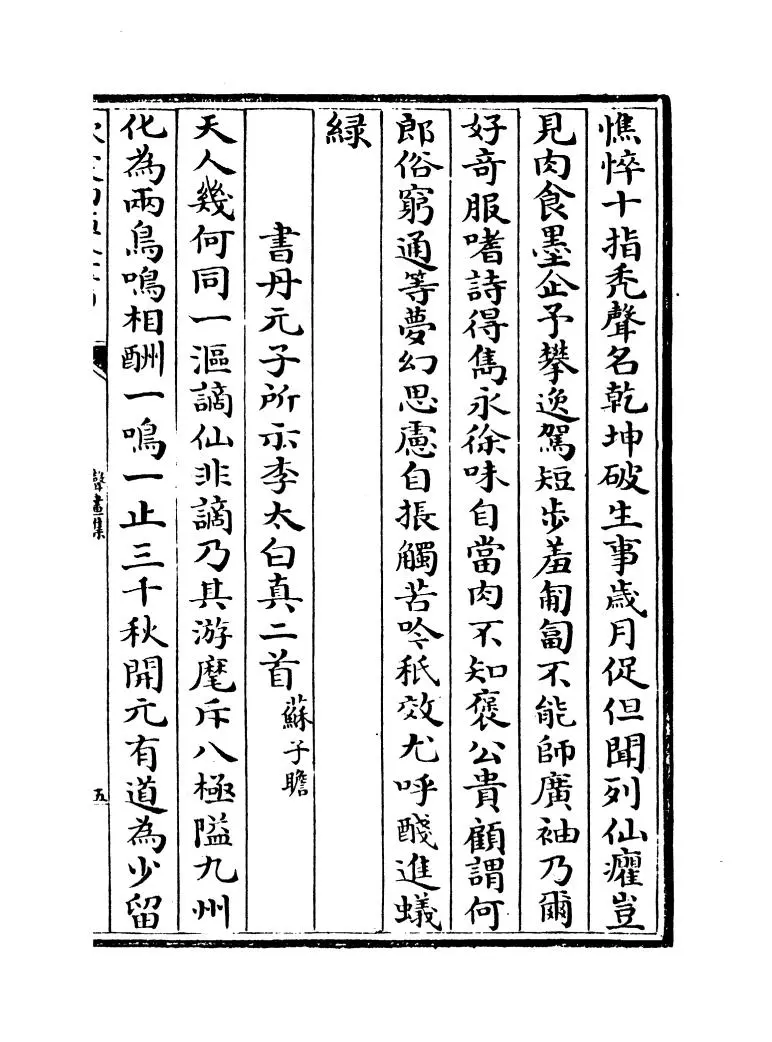 憔悴十指禿聲名乾坤破生事歳月促但聞列仙癯豈
見肉食墨企予攀逸駕短歩羞匍匐不能師廣袖乃爾
好竒服嗜詩得雋永徐味自當肉不知褒公貴顧謂何
郎俗窮通等夢幻思慮自振觸苦吟秖效尤呼醆進蟻
緑
書丹元子所示李太白真二首 蘇子瞻
天人幾何同一漚謫仙非謫乃其游麾斥八極隘九州
化為兩鳥鳴相酬一鳴一止三千秋開元有道為少留
聲畫集
五